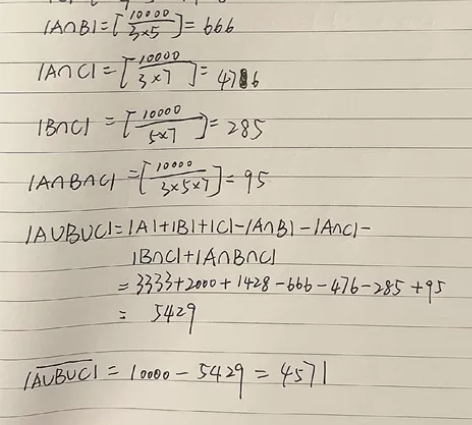 |A∩B|=[10000/3×5]=666
|A∩C|=[10000/3×7]=476
|B∩C|=[10000/5×7]=285
|A∩B∩C|=[10000/3×5×7]=95
|A∪B∪C|=|A|+|B|+|C|-|A∩B|-|A∩C|-
|B∩C|+|A∩B∩C|
=3333+2000+1428-666-476-285+95
= 5429
|A∪B∪C|‾=10000-5429=4571